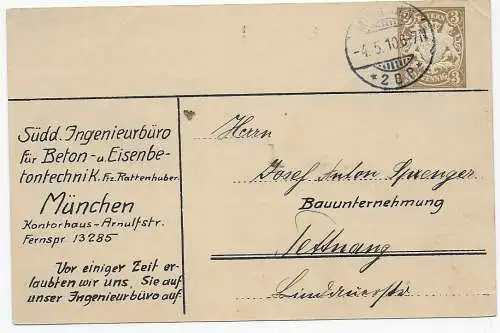 3
3
-4.5.10.6-7N
* 2 B.6 *
Südd. Ingenieurbüro
für Beton- u. Eisenbe-
tontechnik. Fz. Rattenhuber
München
Kontorhaus-Arnulfstr.
Fernspr 13285
Vor einiger Zeit er-
laubten wir uns, Sie auf
unser Ingenieurbüro auf-
Herrn
Josef Anton Sprenger
Bauunternehmung
Tettnang
Lindauerstr